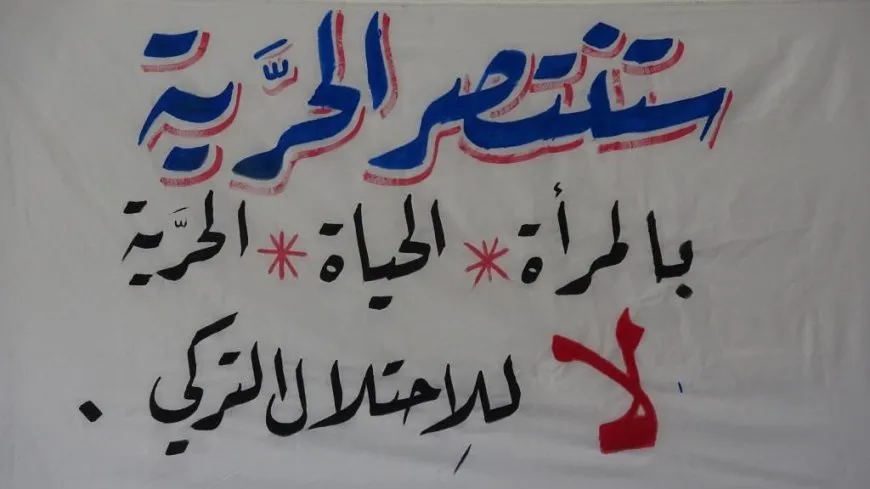 ستنتصر الحرَّية
بالمرأة * الحياة * الحرَّية
لا للإحتلال التركي .